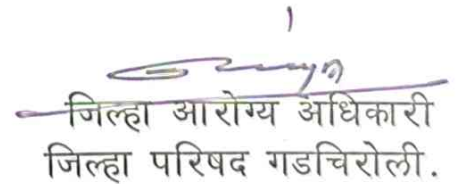 जिल्हा आरोग्य अधिकारी
जिल्हा परिषद गडचिरोली.